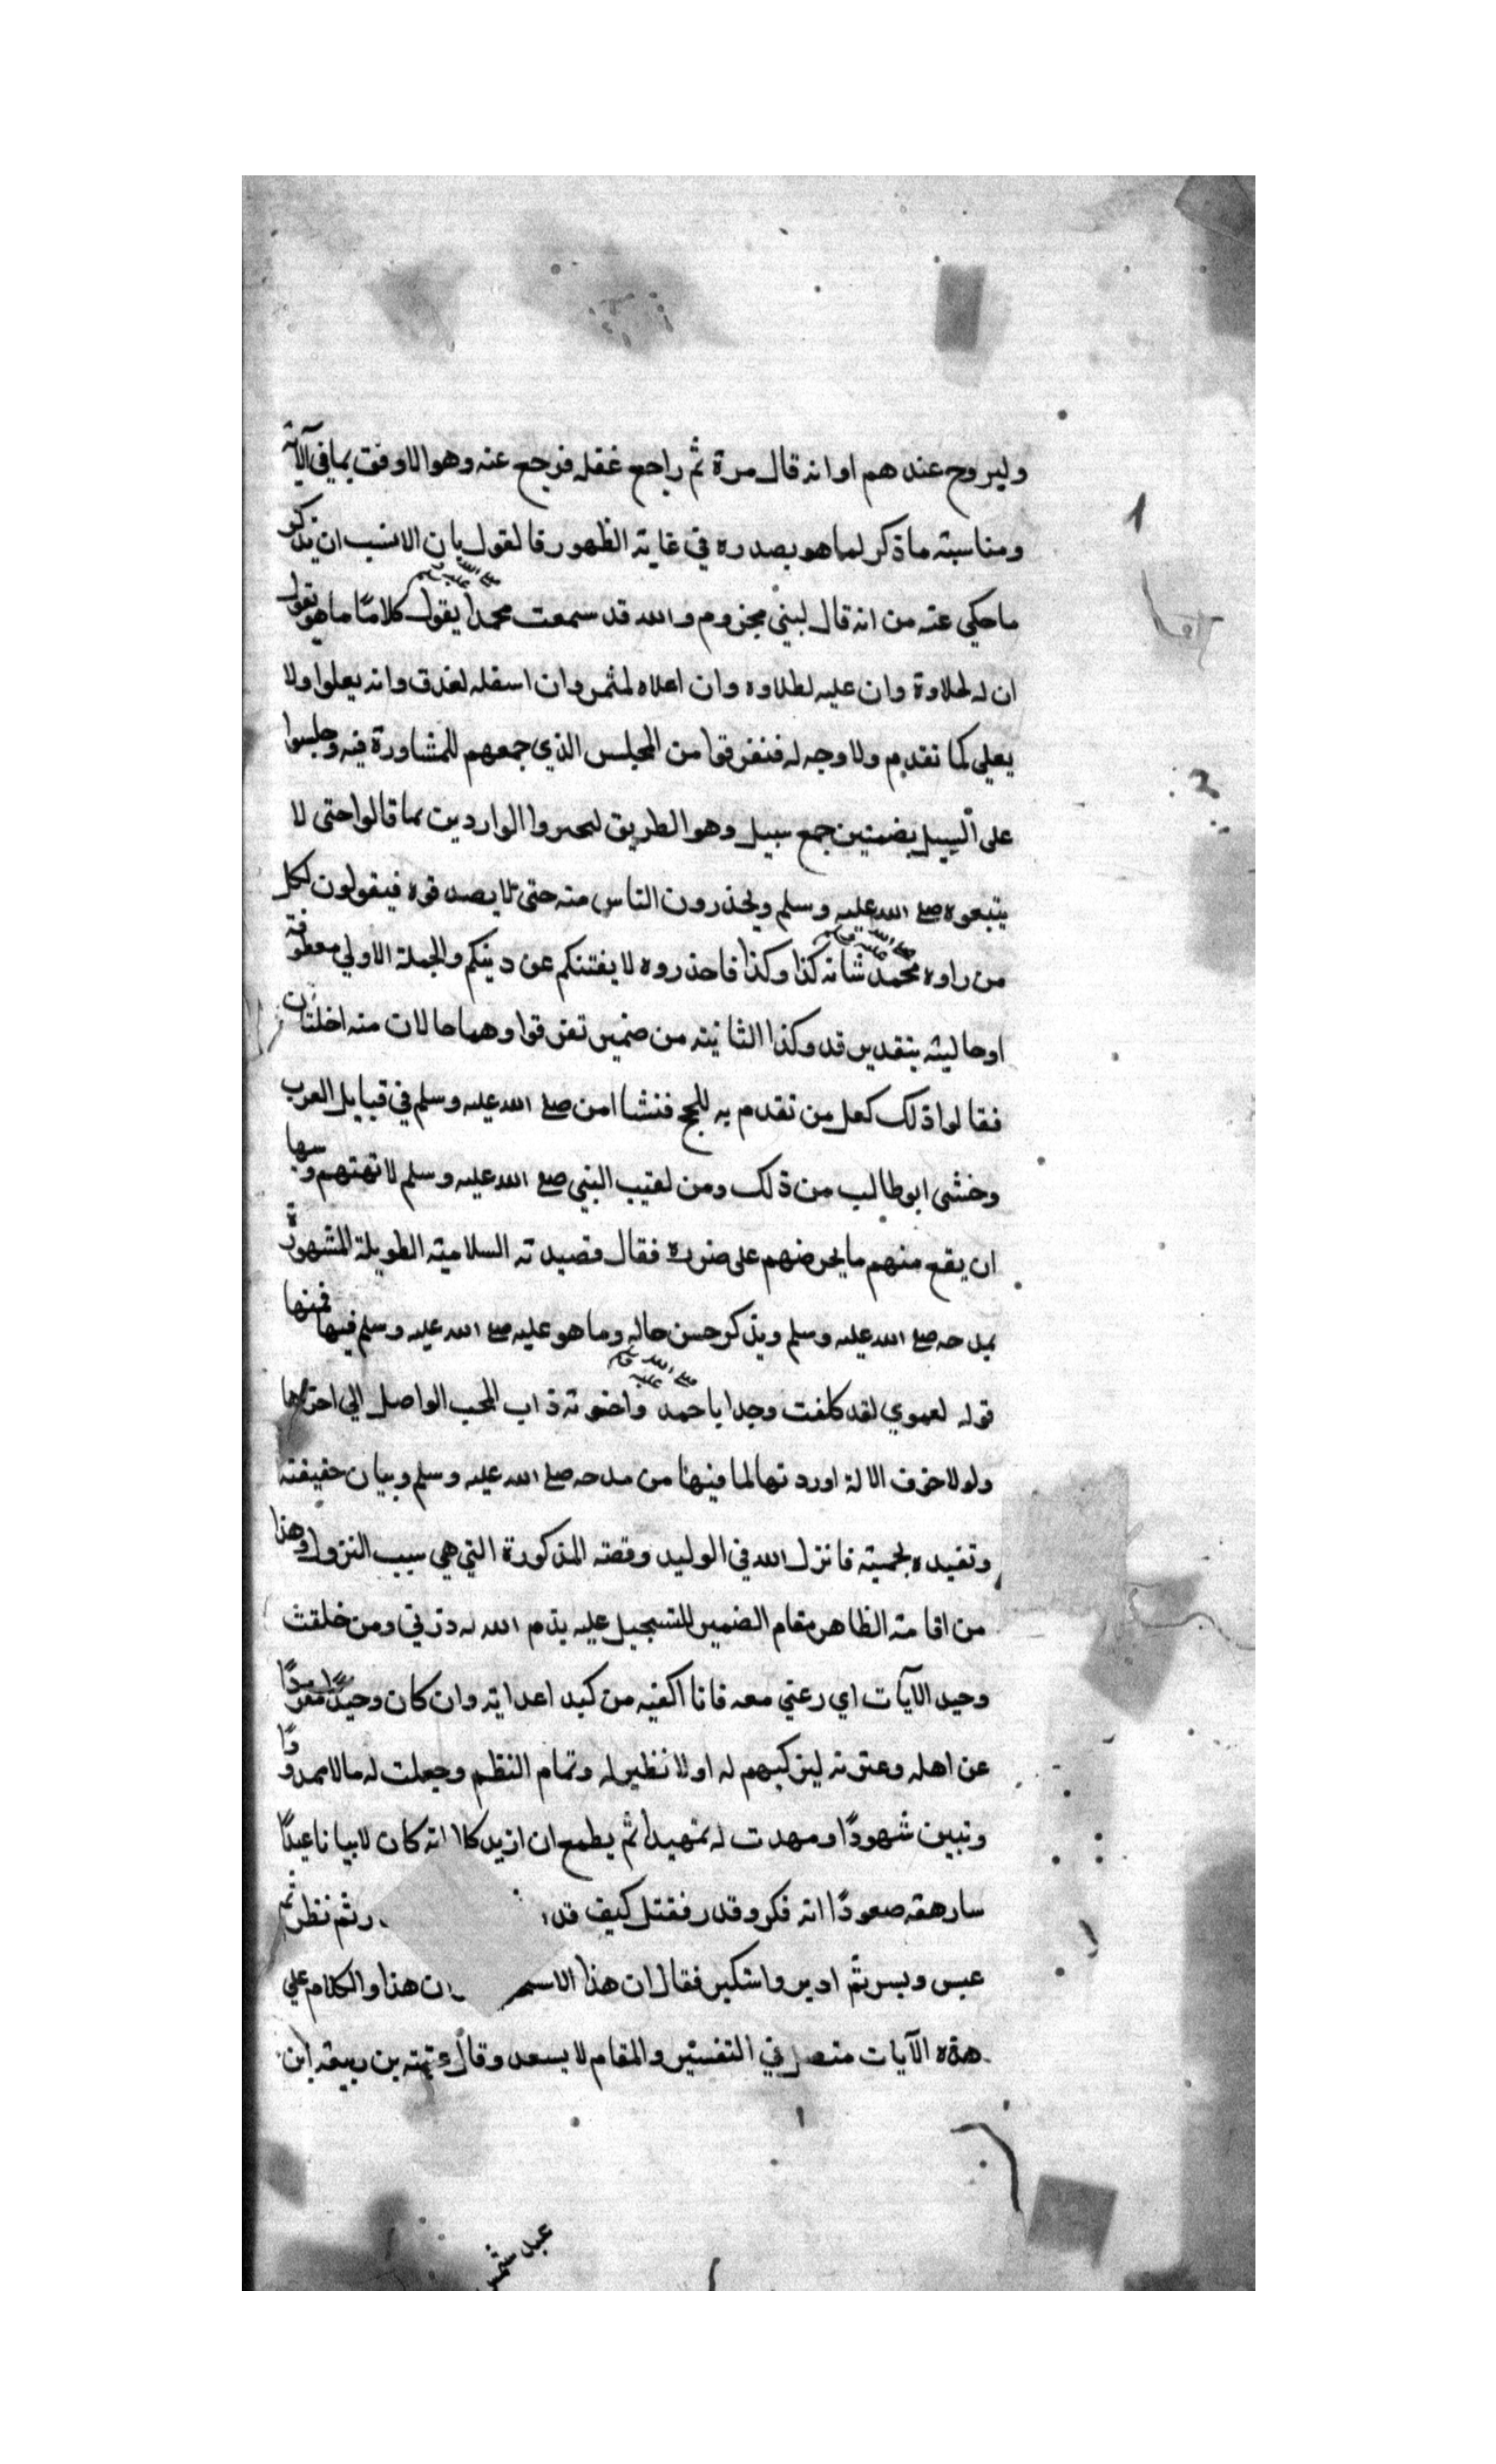 وليروح عندهم او انه قال مرة ثم راجع غفله فرجع عنه وهو الاوفق بما في الآية
ومناسبته ما ذكر لما هو بصدره في غاية الظهور فالقول بان الانسب ان يذكر
ما حكي عنه من انه قال لبني مخزوم والله قد سمعت محمدا صلى الله عليه وسلم يقول كلامًا ما هو بقول
ان له لحلاوة وان عليه لطلاوه وان اعلاه لمثمر وان اسفله لغدق وانه يعلوا ولا
يعلى كما تقدم ولا وجه له فتفرقوا من المجلس الذي جمعهم للمشاورة فيه وجلسوا
على السبل بضمتين جمع سبيل وهو الطريق ليخبروا الواردين بما قالوا حتى لا
يتبعوه صلع الله عليه وسلم ويحذرون الناس منه حتى لا يصدقوه فيقولون لكل
من راوه محمد صلى الله عليه وسلم شانه كذا وكذا فاحذروه لا يفتنكم عن دينكم والجملة الاولي معطوفة
او حاليته بتقدير قد وكذا الثانيته من ضمير تفرقوا وهما حالات منه اخلتان
فقالوا ذلك كعل من تقدم به للحج فنشا امن صلع الله عليه وسلم في قبايل العرب
وخشى ابو طالب من ذلك ومن لعتب النبي صلع الله عليه وسلم لا تهتهم وسها
ان يقع منهم ما يحرضهم على ضرره فقال قصيدته السلاميته الطويلة المشهورة
بمدحه صلع الله عليه وسلم ويذكر حسن حاله وما هو عليه صلع الله عليه وسلم فيها فمنها
قوله لعموي لقد كلفت وجدا باحمد صلى الله عليه وسلم واخوته ذاب المحب الواصل الي اخرها
ولولا خوف الالة اوردتها لما فيها من مدحه صلع الله عليه وسلم وبيان حقيقته
وتفيده بحميته فانزل الله في الوليد وقصته المذكورة التي هي سبب النزول وهذا
من اقامته الظاهر مقام الضمير للتسجيل عليه بذم الله له ذرني ومن خلقت
وحيد الآيات اي دعني معه فانا اكفيه من كيد اعدايه وان كان وحيدًا مفردًا
عن اهله وعترته ليتركبهم له او لا نظير له وتمام النظم وجعلت له مالا ممدودًا
وبنين شهودًا ومهدت له تمهيدا ثم يطمع ان ازيد كلا انه كان لاياتنا عيدًا
سارهقه صعودًا انه فكر وقدر فقتل كيف قد ر ثم نظر ثم
عبس وبسر ثم ادبر واستكبر فقال ان هذا الا سحر ان هذا والكلام علي
هذه الآيات متصل في التفستير والمقام لا يسعد وقال عتبته بن ربيعه ابن
عبد شمس